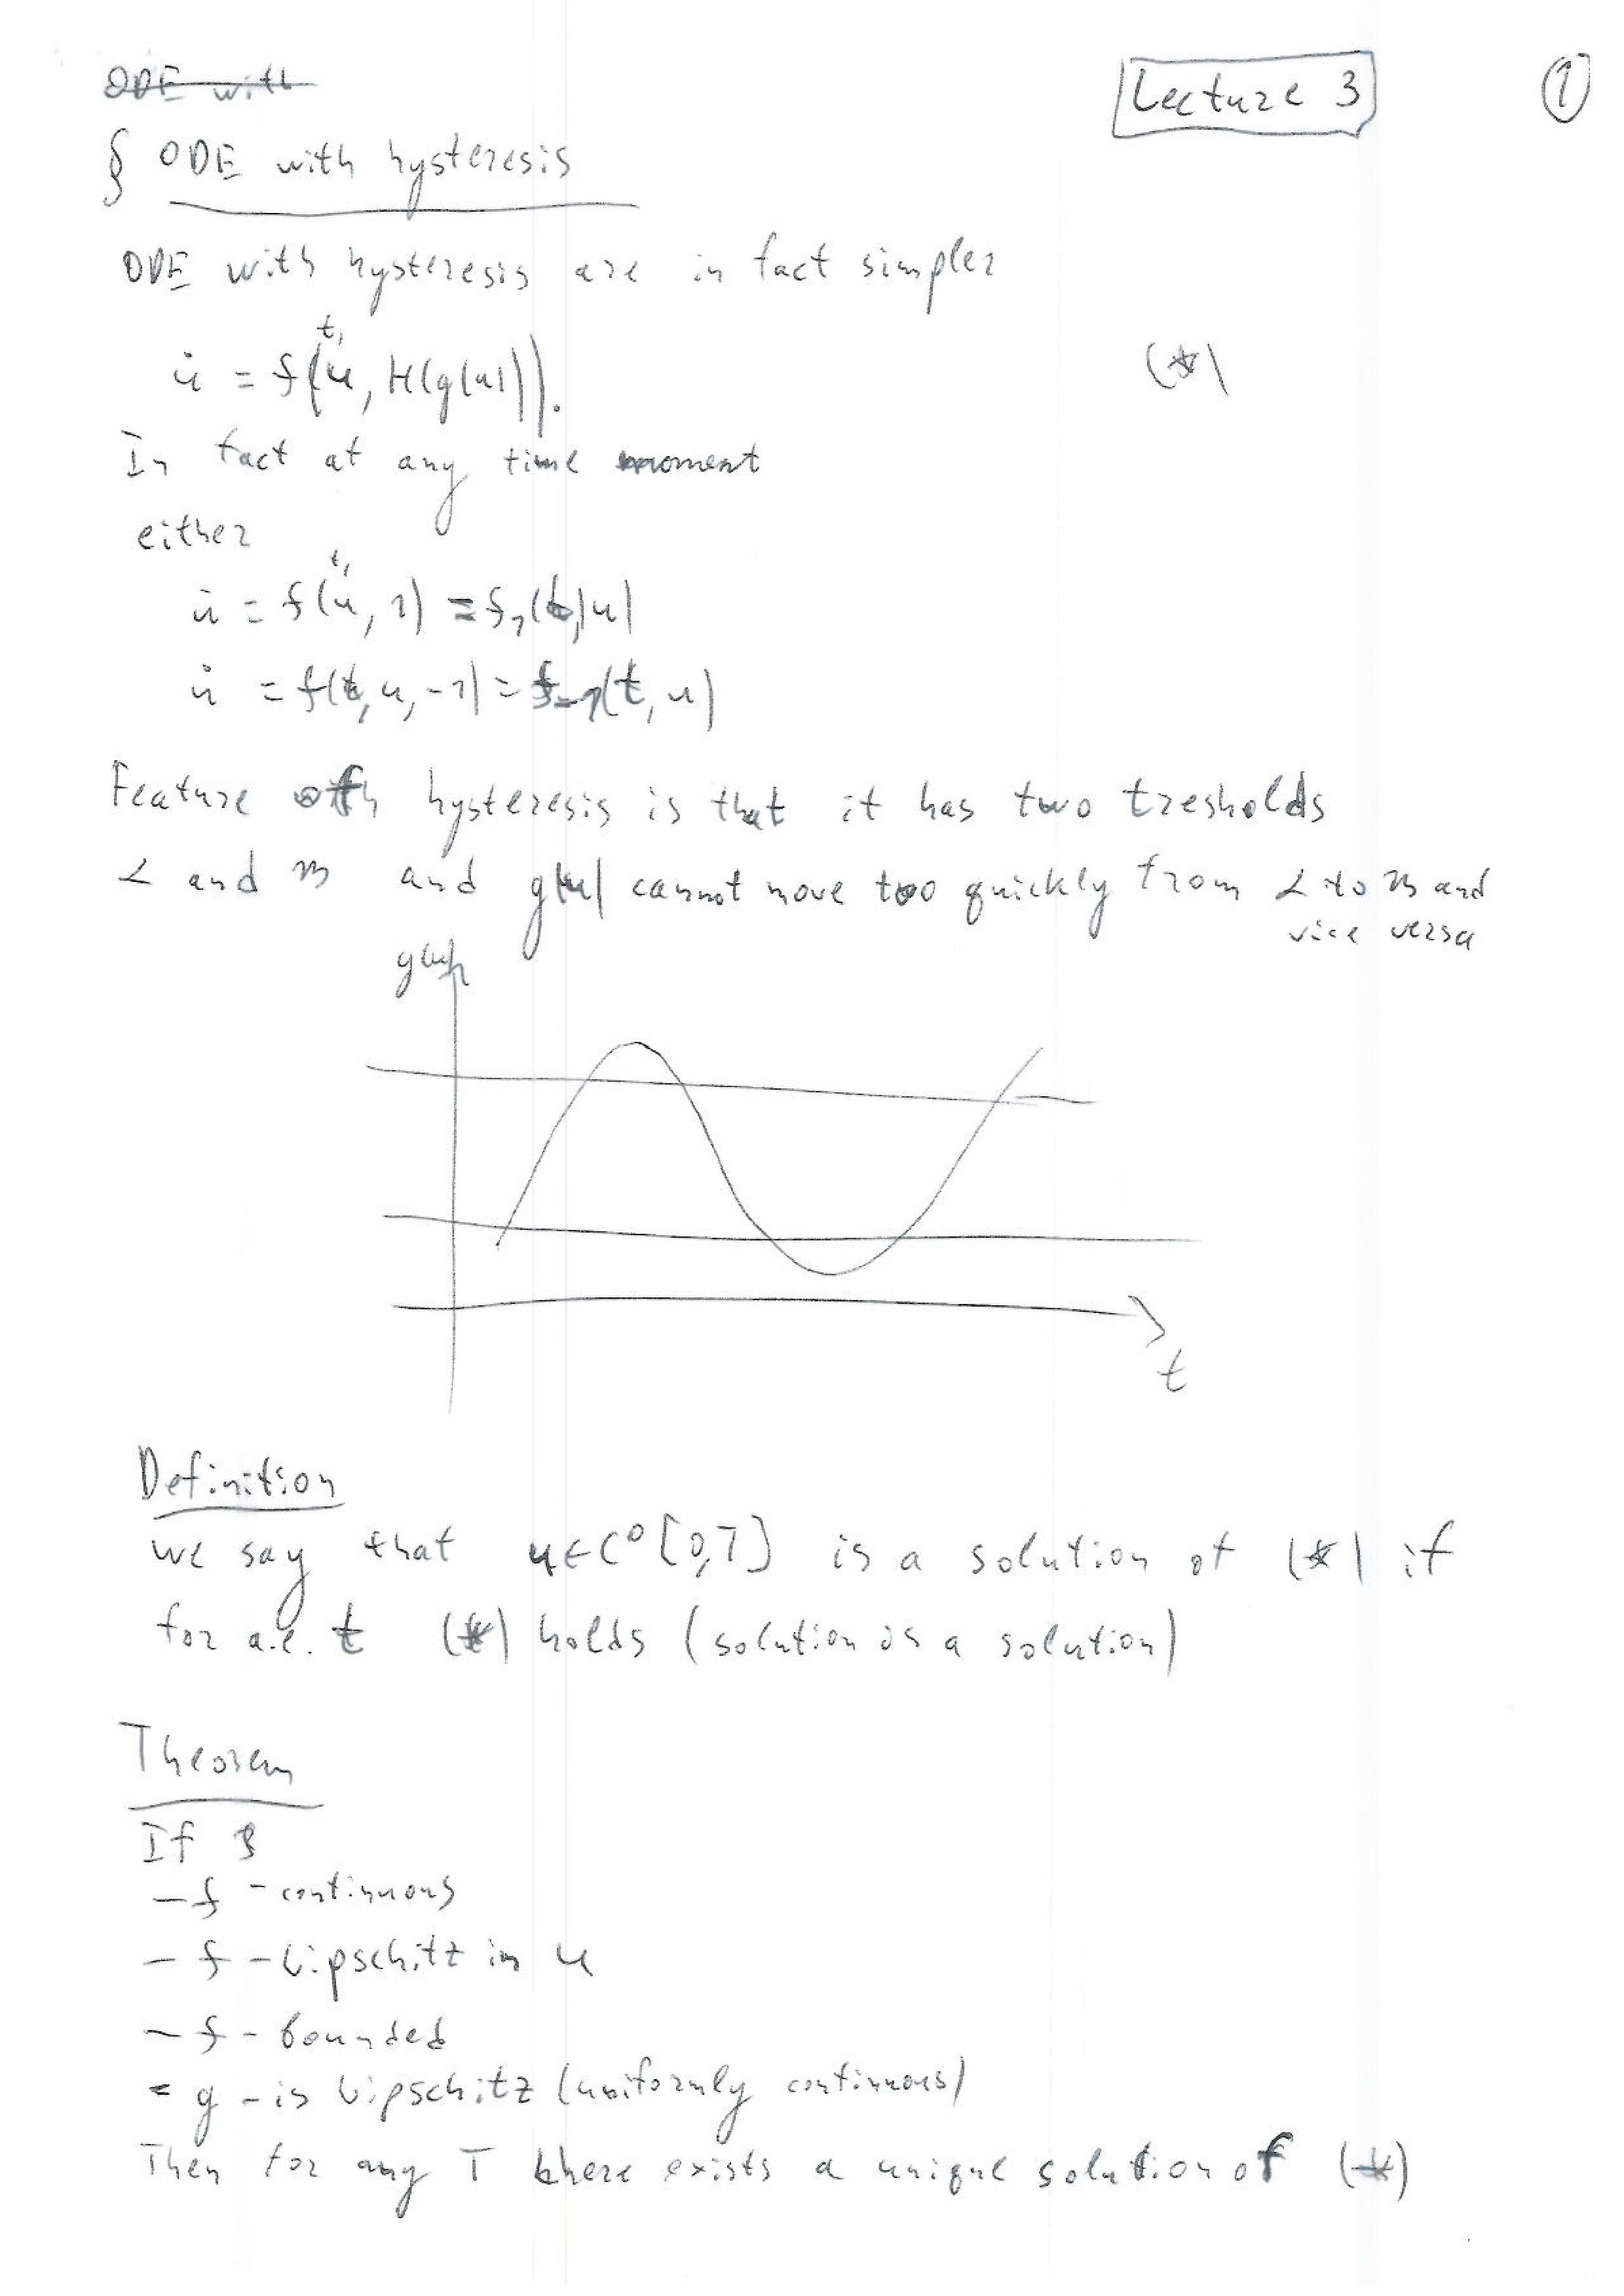 ODE with
Lecture 3
1
§ ODE with hysteresis
ODE with hysteresis are in fact simpler
u̇ = f(t, u, H(g(u))).
(*)
In fact at any time moment
either
u̇ = f(t, u, 1) = f₁(t, u)
u̇ = f(t, u, -1) = f₋₁(t, u)
Feature of hysteresis is that it has two tresholds
α and β and g(u) cannot move too quickly from α to β and
vice versa
g(u)
t
Definition
we say that u∈C⁰[0,T] is a solution of (*) if
for a.e. t (*) holds (solution is a solution)
Theorem
If
- f - continuous
- f - Lipschitz in u
- f - bounded
- g - is Lipschitz (uniformly continuous)
Then for any T there exists a unique solution of (*)